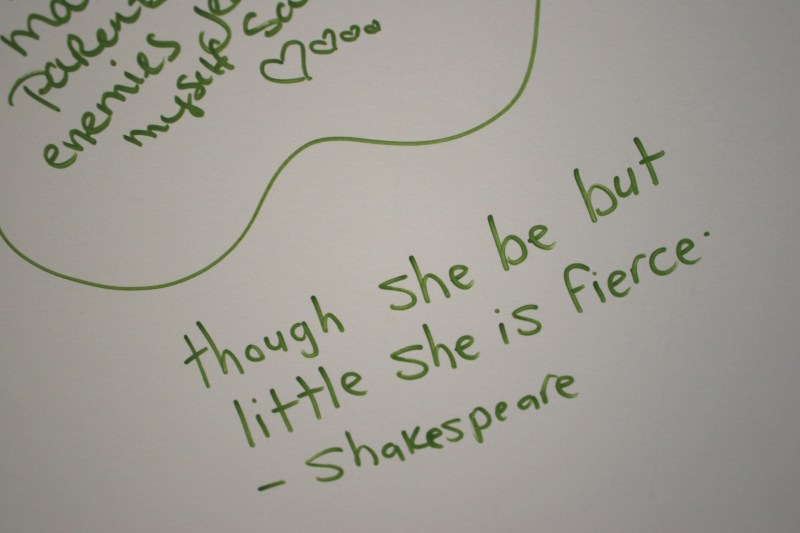 enemies
myself
though she be but
little she is fierce.
- Shakespeare